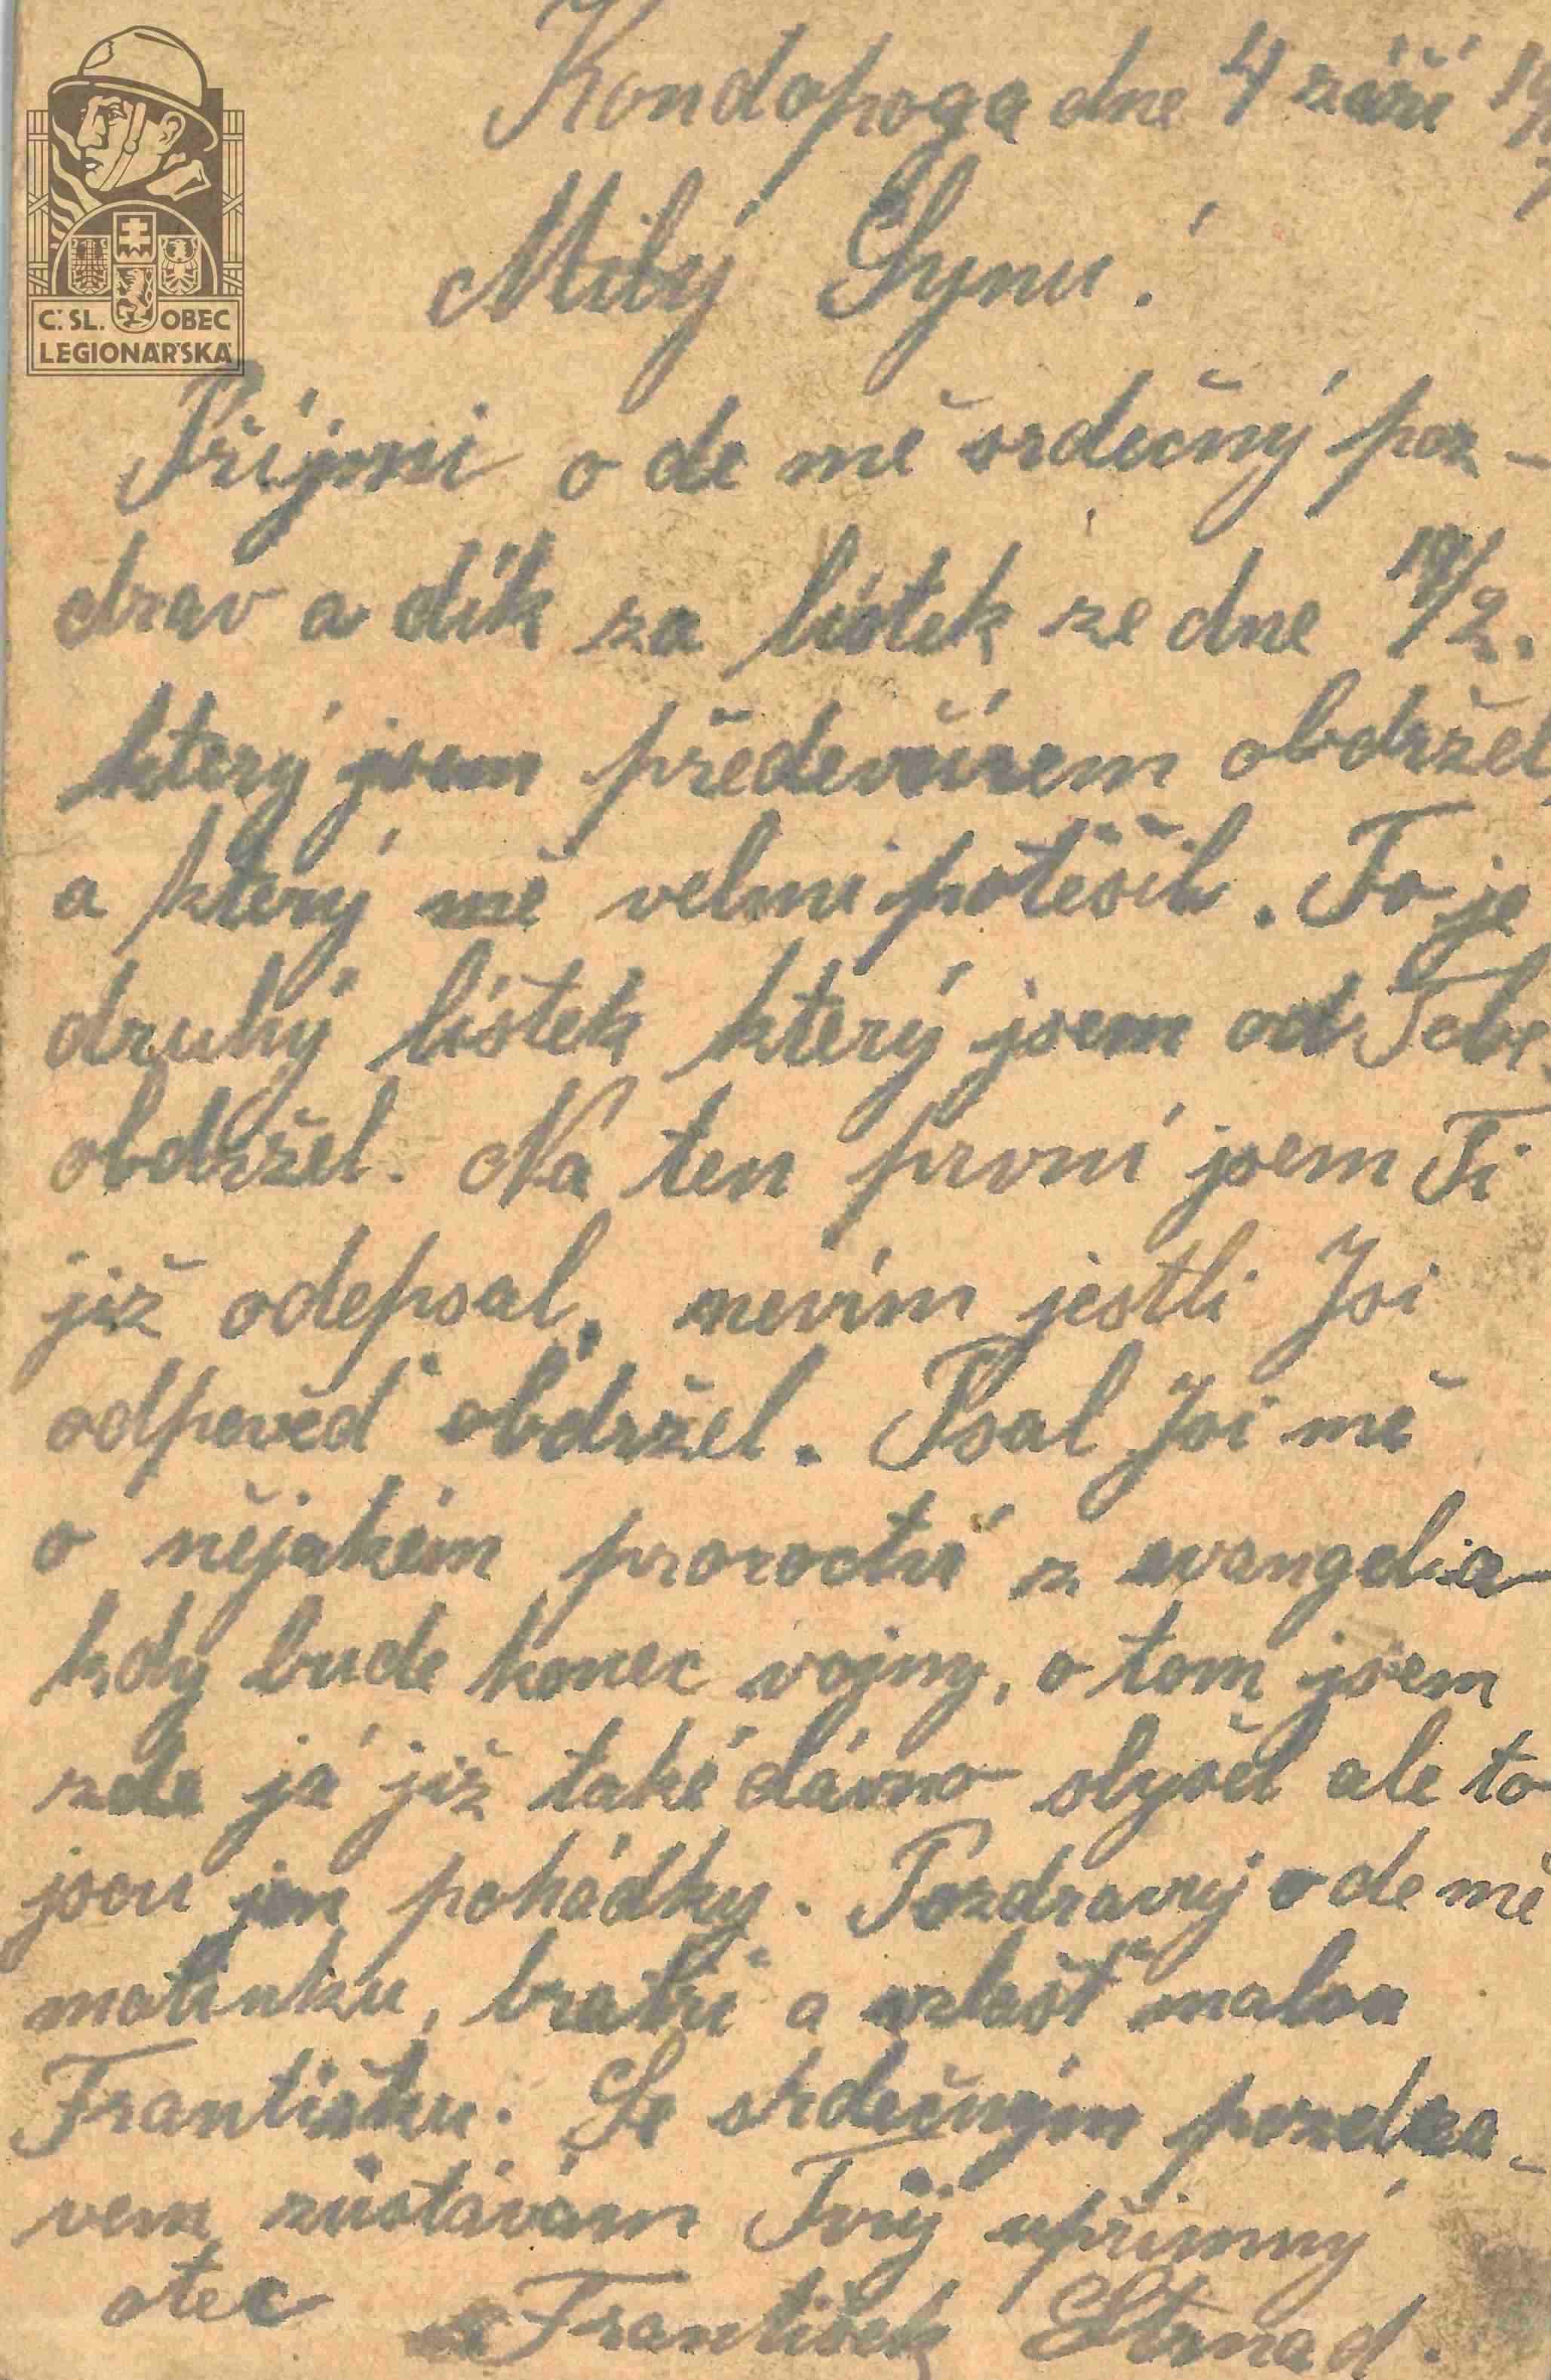 Č.SL. OBEC
LEGIONÁŘSKÁ
Kondopoga dne 4 září
Milý Synu!
Příjmi o de mě srdečný poz-
drav a dík za lístek ze dne 19/2.
který jsem předevčírem obdržel
a který mě velmi potěšil. To je
druhý lístek který jsem od Tebe
obdržel. Na ten první jsem Ti
již odepsal, nevím jestli Jsi
odpověď obdržel. Psal Jsi mě
o nějakém proroctví z evangelia
kdy bude konec vojny, o tom jsem
zde já již také dávno slyšel ale to
jsou jen pohádky. Pozdravuj o de mě
matinku, bratří a zvlášť malou
Františku. Se srdečným pozdra-
vem zůstávám Tvůj upřímný
otec František Strnad.